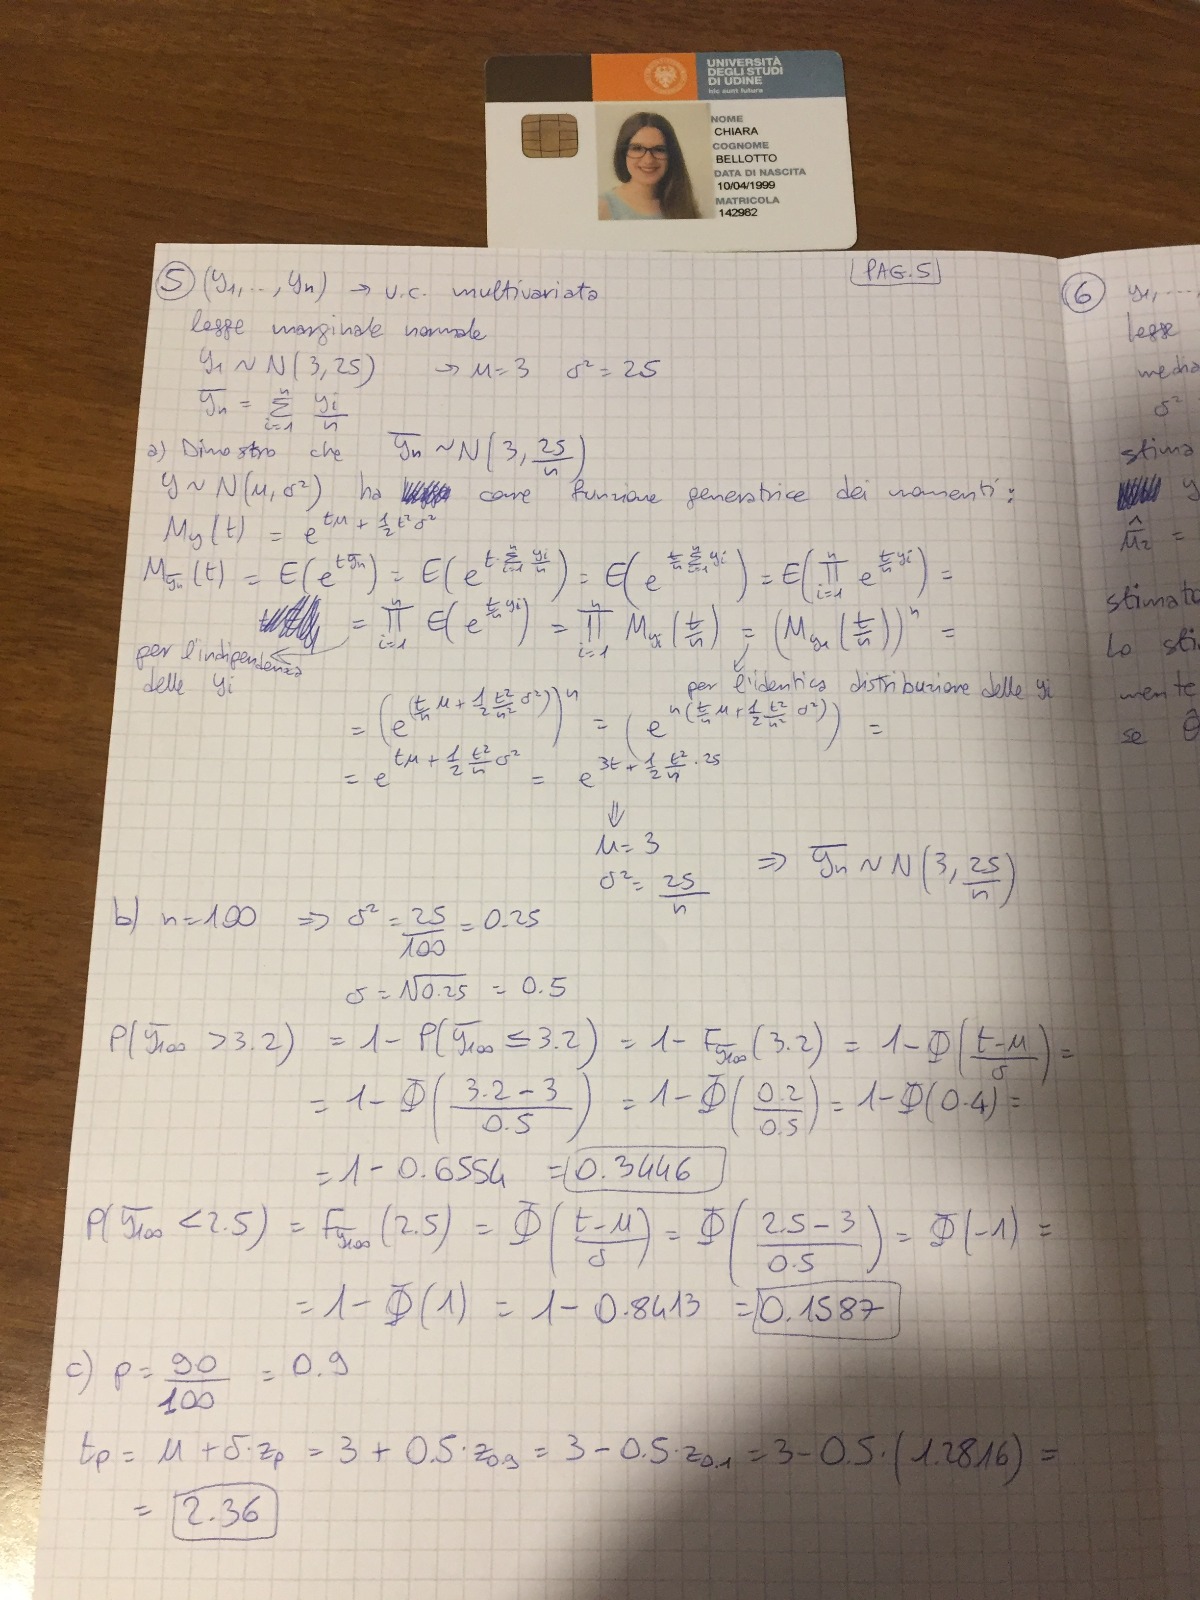 UNIVERSITÀ
DEGLI STUDI
DI UDINE
hic sunt futura
NOME
CHIARA
COGNOME
BELLOTTO
DATA DI NASCITA
10/04/1999
MATRICOLA
142982
PAG. 5
5 (y₁, ..., yₙ) → v.c. multivariata
legge marginale normale
y₁ ~ N(3, 25) → μ = 3 σ² = 25
ȳₙ = Σᵢ₌₁ⁿ yᵢ/n
a) Dimostro che ȳₙ ~ N(3, 25/n)
y ~ N(μ, σ²) ha come funzione generatrice dei momenti:
M_y(t) = e^(tμ + 1/2 t²σ²)
M_ȳₙ(t) = E(e^(tȳₙ)) = E(e^(t·Σᵢ₌₁ⁿ yᵢ/n)) = E(e^(t/n Σᵢ₌₁ⁿ yᵢ)) = E(∏ᵢ₌₁ⁿ e^(t/n yᵢ)) =
= ∏ᵢ₌₁ⁿ E(e^(t/n yᵢ)) = ∏ᵢ₌₁ⁿ M_yᵢ(t/n) = (M_y₁(t/n))ⁿ =
per l'indipendenza
delle yᵢ
per l'identica distribuzione delle yᵢ
= (e^(t/n μ + 1/2 t²/n² σ²))ⁿ = (e^(n(t/n μ + 1/2 t²/n² σ²))) =
= e^(tμ + 1/2 t²/n σ²) = e^(3t + 1/2 t²/n · 25)
⇓
μ = 3
σ² = 25/n
⇒ ȳₙ ~ N(3, 25/n)
b) n = 100 ⇒ σ² = 25/100 = 0.25
σ = √0.25 = 0.5
P(ȳ₁₀₀ > 3.2) = 1 - P(ȳ₁₀₀ ≤ 3.2) = 1 - F_ȳ₁₀₀(3.2) = 1 - Φ((t-μ)/σ) =
= 1 - Φ((3.2 - 3)/0.5) = 1 - Φ(0.2/0.5) = 1 - Φ(0.4) =
= 1 - 0.6554 = 0.3446
P(ȳ₁₀₀ < 2.5) = F_ȳ₁₀₀(2.5) = Φ((t-μ)/σ) = Φ((2.5 - 3)/0.5) = Φ(-1) =
= 1 - Φ(1) = 1 - 0.8413 = 0.1587
c) p = 90/100 = 0.9
t_p = μ + σ·z_p = 3 + 0.5·z₀.₉ = 3 - 0.5·z₀.₁ = 3 - 0.5·(1.2816) =
= 2.36
6 y₁, ...,
legge
media
σ²
stima
y
μ̂₂ =
stimato
Lo sti
mente
se θ̂